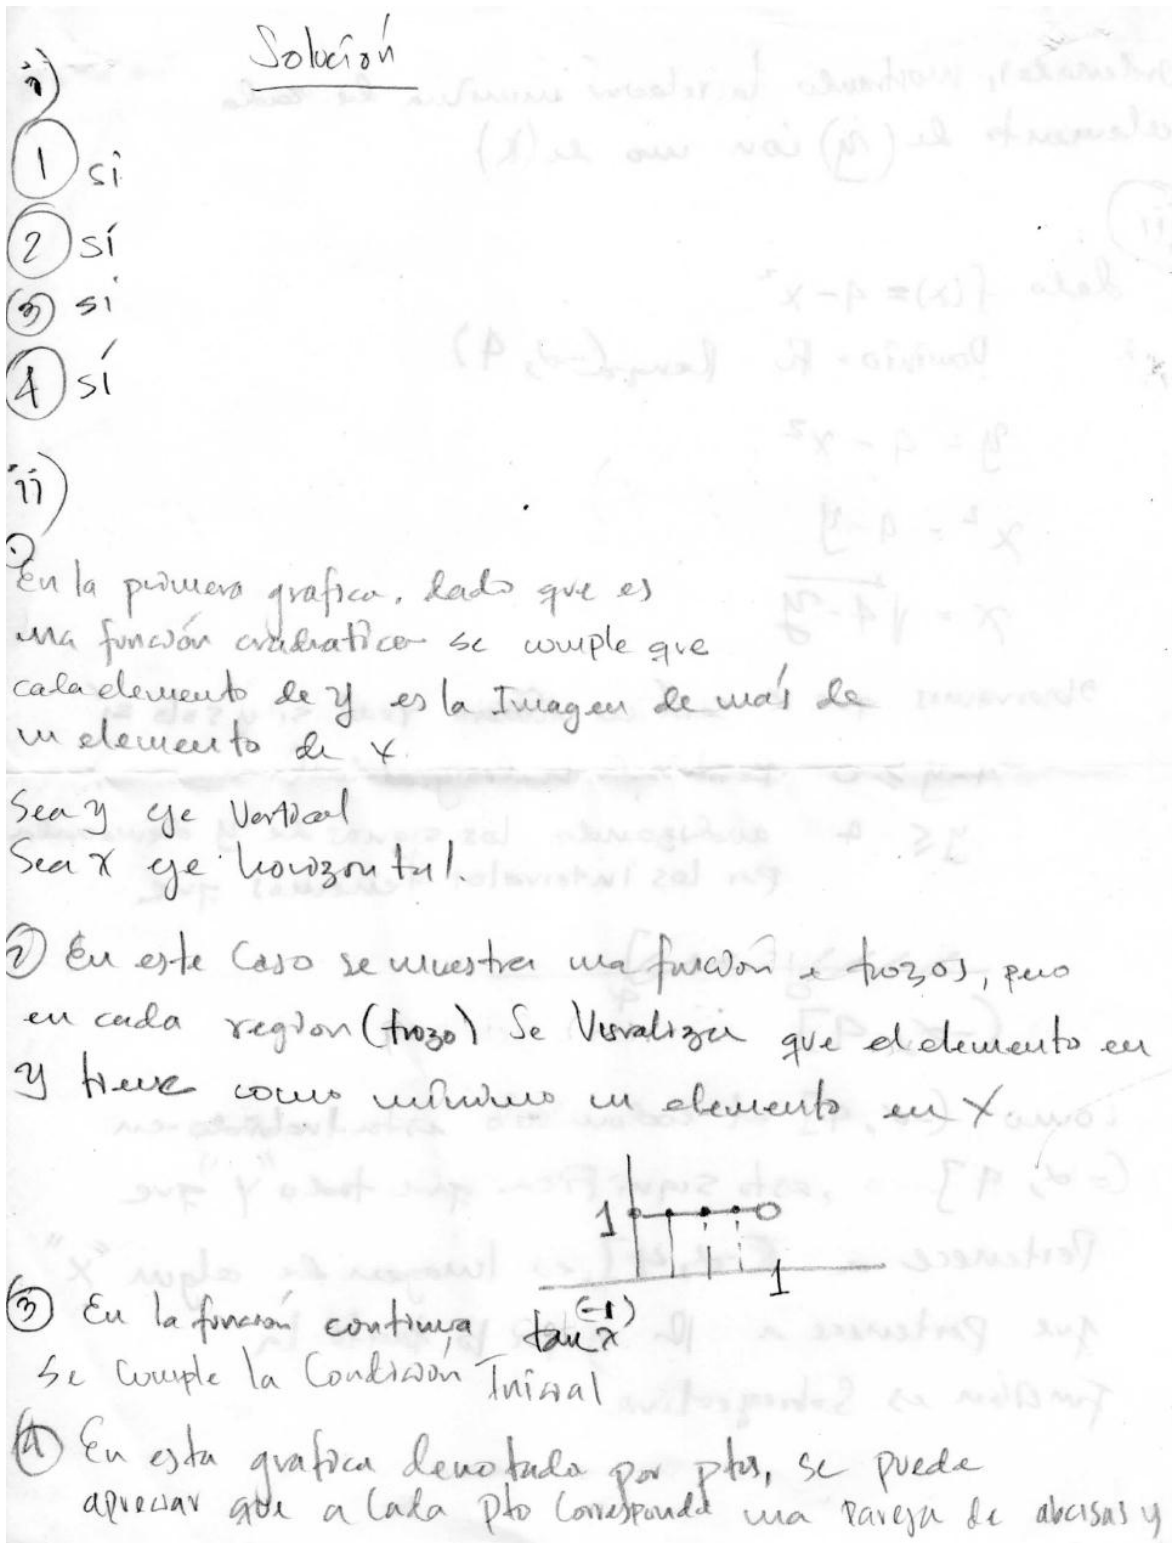 Solución
i)
1 si
2 sí
3 si
4 sí
ii)
En la primera grafica, dado que es
una función cuadratica se cumple que
cada elemento de y es la Imagen de más de
un elemento de x.
Sea y eje Vertical
Sea x eje horizontal.
2 En este Caso se muestra una función a trozos, pero
en cada region (trozo) Se Visualiza que el elemento en
y tiene como mínimo un elemento en X
1
1
3 En la función continua tan^(-1) x
se cumple la Condición Inicial
4 En esta grafica denotada por ptos, se puede
apreciar que a Cada Pto Corresponde una Pareja de abcisas y